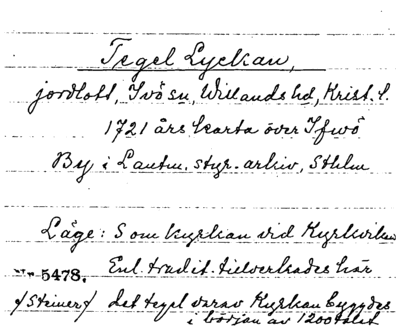 Tegel Lyckan,
jordlott, Ivö sn, Willands hd, Krist. l.
1721 års karta över Ifwö
By i Lantm. styr. arkiv, Sthlm
Läge: S om kyrkan vid Kyrkviken
Enl. tradit. tillverkades här
5478.
/Steiner/ det tegel varav Kyrkan byggdes
i början av 1200talet